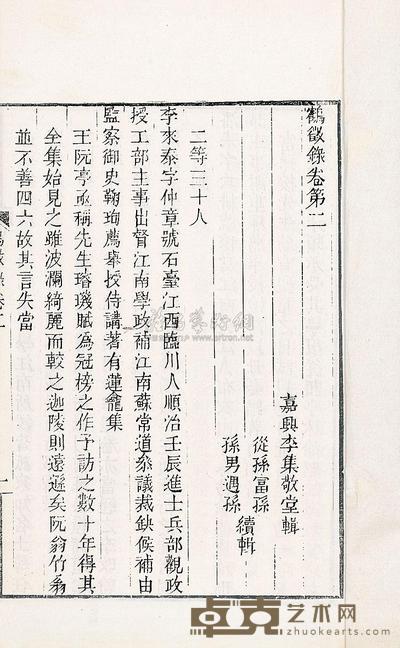 鶴徵錄卷第二
嘉興李集敬堂輯
從孫富孫
孫男遇孫
續輯
二等三十人
李來泰字仲章號石臺江西臨川人順治壬辰進士兵部觀政
授工部主事出督江南學政補江南蘇常道叅議裁缺候補由
監察御史鞠珣薦舉授侍講著有蓮龕集
王阮亭亟稱先生璿璣賦爲冠榜之作予訪之數十年得其
全集始見之雖波瀾綺麗而較之迦陵則遠遜矣阮翁竹翁
並不善四六故其言失當
卓克艺术网
www.zhuokearts.com
www.artron.net